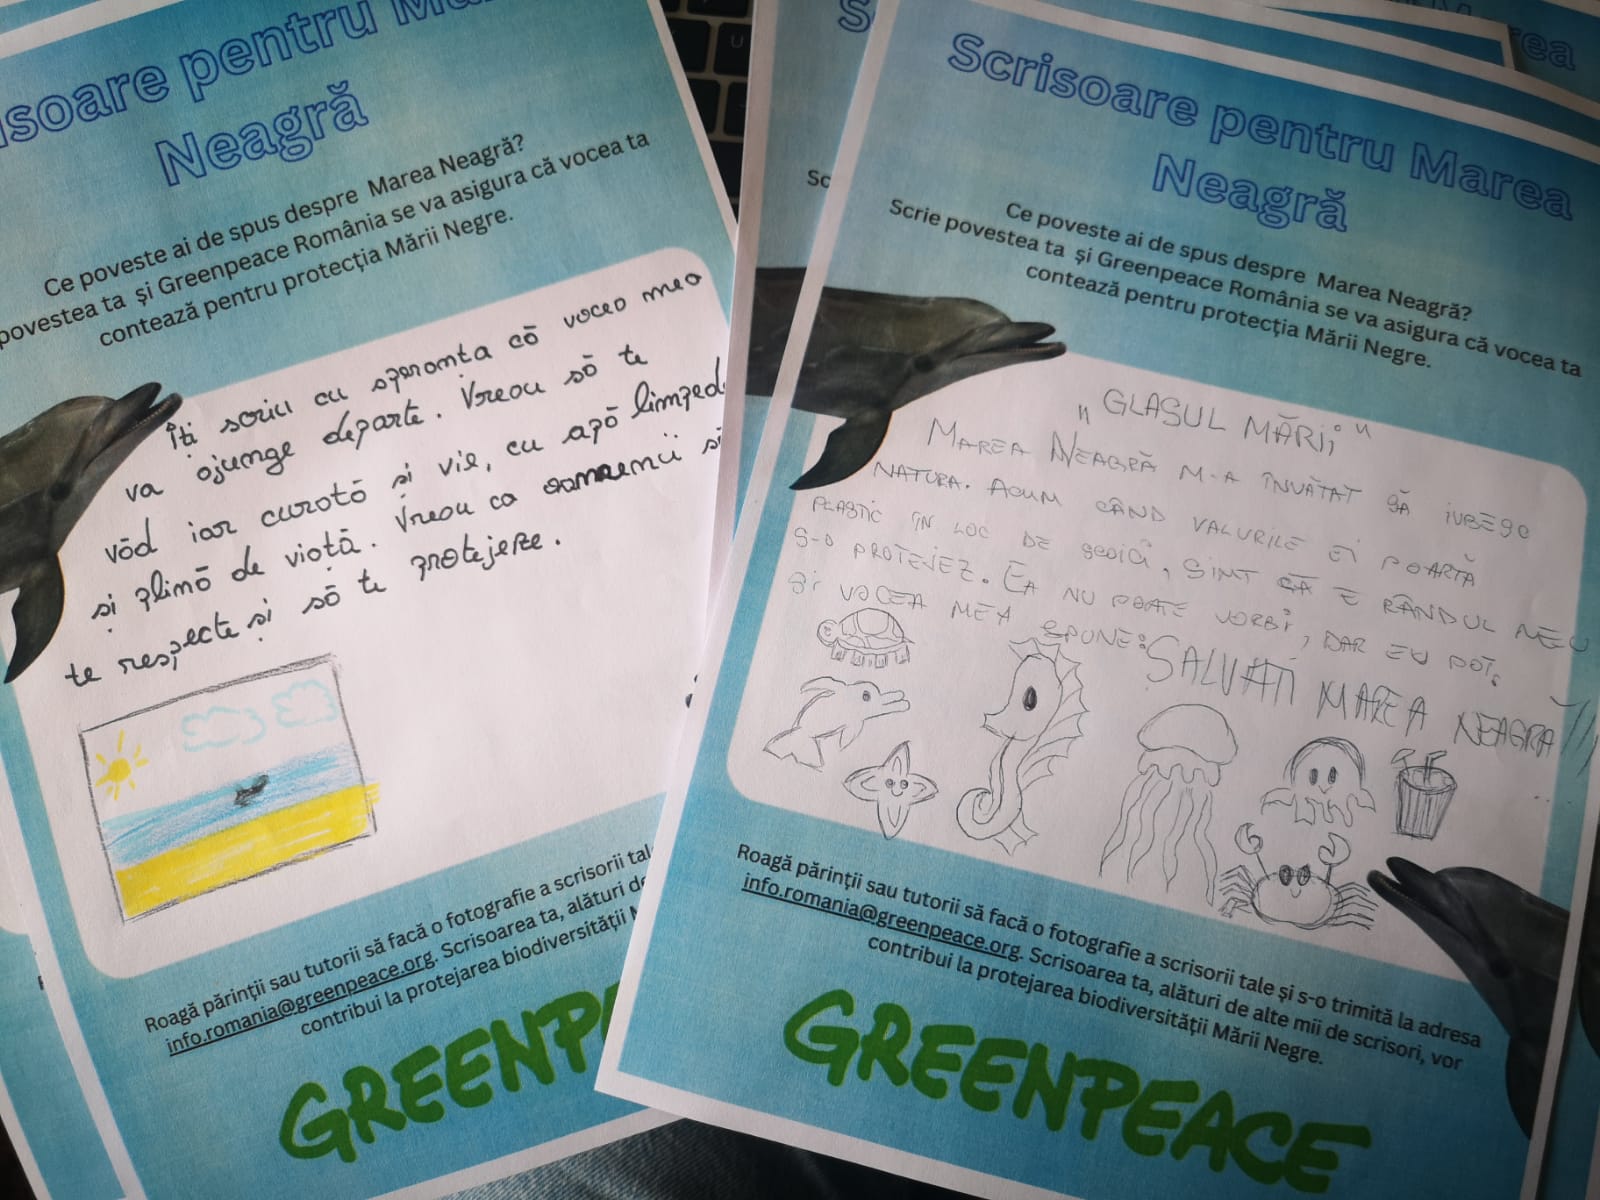 isoare pentru Ma
Neagră
Ce poveste ai de spus despre Marea Neagră?
povestea ta și Greenpeace România se va asigura că vocea ta
contează pentru protecția Mării Negre.
Îți scriu cu speranța că vocea mea
va ajunge departe. Vreau să te
văd iar curată și vie, cu apă limped
și plină de viață. Vreau ca oamenii să
te respecte și să te protejeze.
Roagă părinții sau tutorii să facă o fotografie a scrisorii tale
info.romania@greenpeace.org. Scrisoarea ta, alături de
contribui la protejarea biodiversității M
GREENPE
S
Sc
Scrisoare pentru Marea
Neagră
Ce poveste ai de spus despre Marea Neagră?
Scrie povestea ta și Greenpeace România se va asigura că vocea ta
contează pentru protecția Mării Negre.
„GLASUL MĂRII"
MAREA NEAGRĂ M-A ÎNVĂTAT SĂ IUBESC
NATURA. ACUM CÂND VALURILE EI POARTĂ
PLASTIC ÎN LOC DE SCOICI, SIMT CĂ E RÂNDUL MEU
S-O PROTEJEZ. EA NU POATE VORBI, DAR EU POT.
ȘI VOCEA MEA SPUNE: SALVATI MAREA NEAGRA!!!
Roagă părinții sau tutorii să facă o fotografie a scrisorii tale și s-o trimită la adresa
info.romania@greenpeace.org. Scrisoarea ta, alături de alte mii de scrisori, vor
contribui la protejarea biodiversității Mării Negre.
GREENPEACE
rea
U